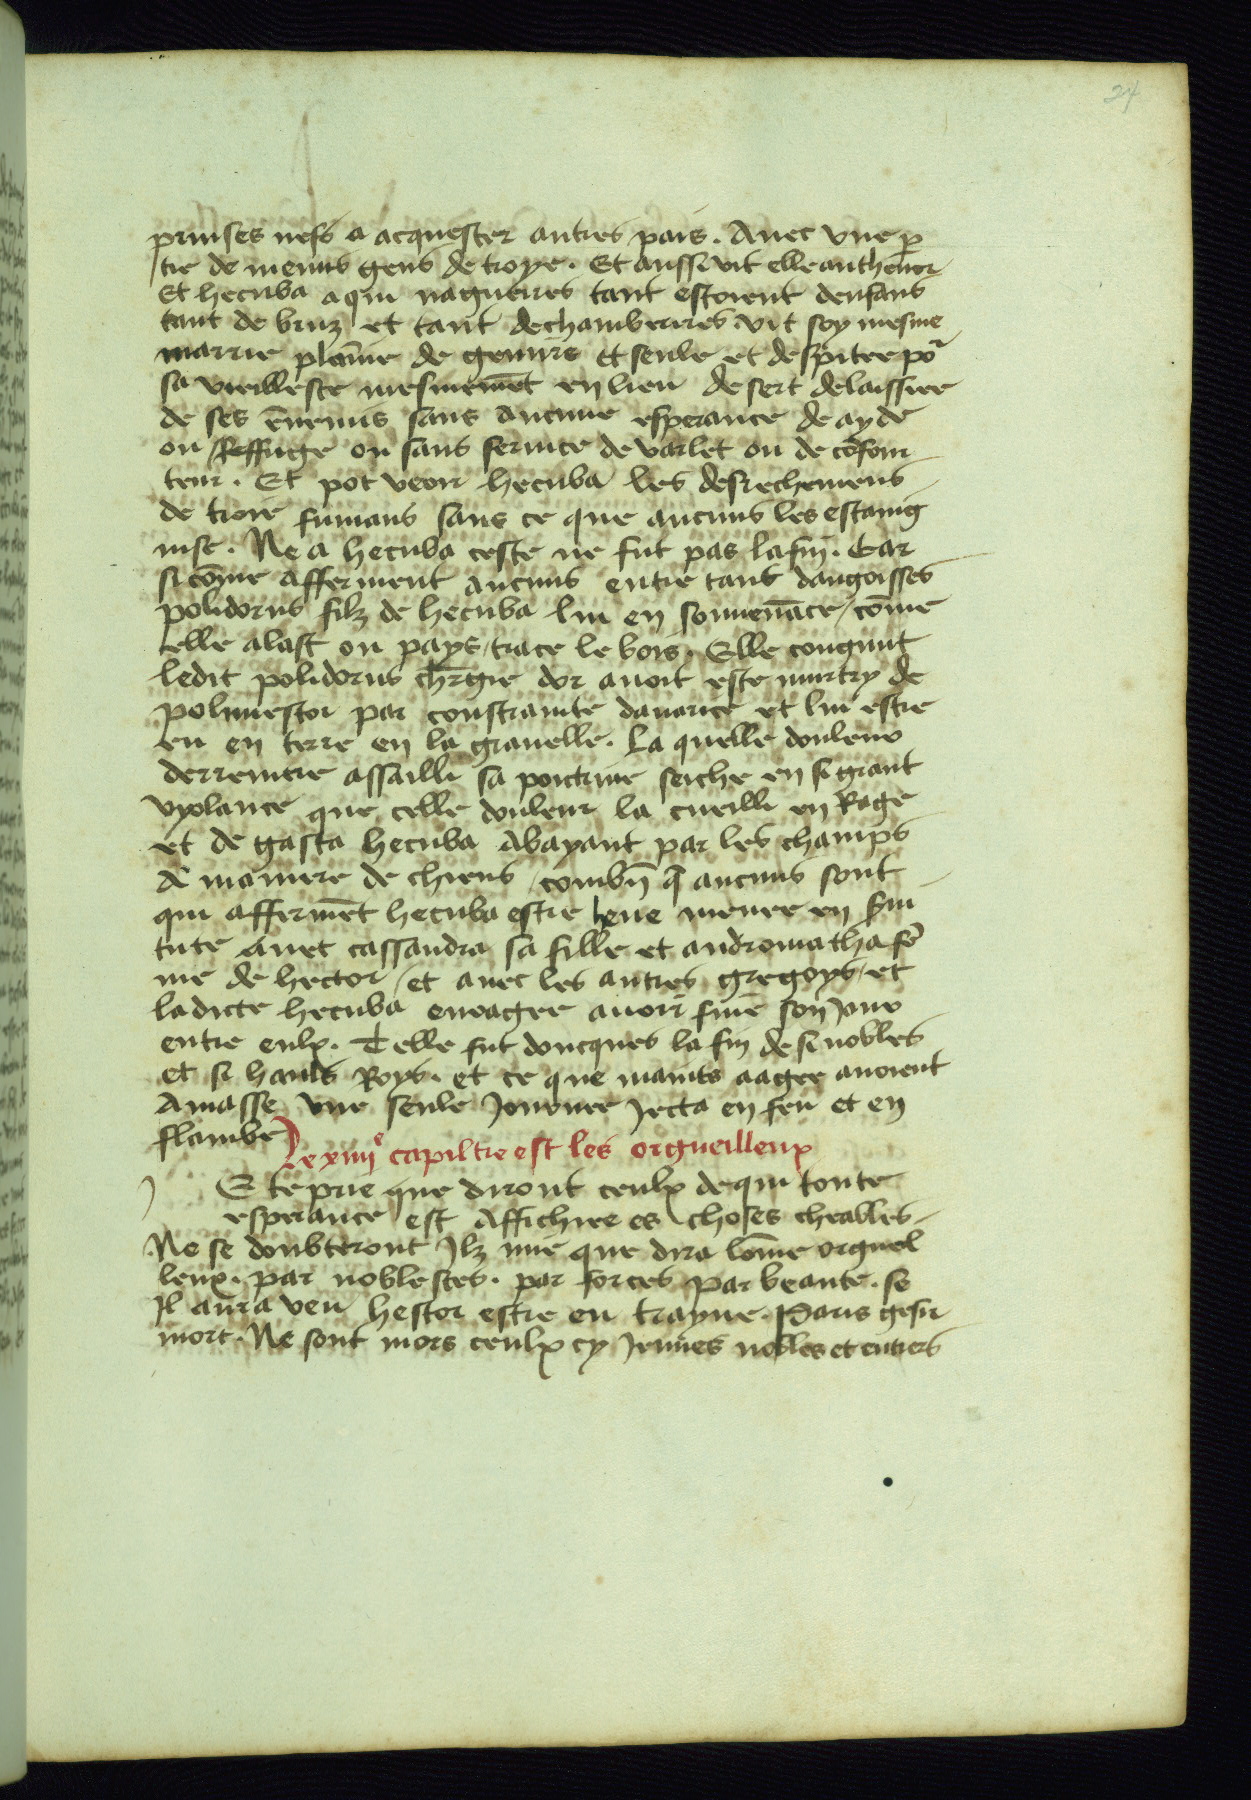 24
prinses nefs a acquester autres pais. Auec vne p
tie de menus gens de troye. Et aussi vit elle anthenor
Et hecuba a qui nagueires tant estoient denfans
tant de bruz et tant de chamberires vit soy mesme
marrie plaīne de gemirs et seule et despitee po᷑
sa vieillesce mesmemēt en lieu desert delaissiee
de ses ēnemis sans aucune esperance de ayde
ou Reffuge ou sans seruice de varlet ou de cōfour
teur. Et pot veoir hecuba les destrechemens
de troie fumans sans ce que aucuns les estaing
nist. Ne a hecuba ceste ne fut pas la fin. Car
si cōme afferment aucuns entre tans dangoisses
polidorus filz de hecuba lui en souuenāce / cōme
elle alast ou pays / trace le bois. Elle congnut
ledit polidorus chr̄gie dor auoit este murtry de
polimestor par constrainte dauarice et lui estre
en en terre en la grauelle. La quelle douleur
derreniere assailli sa poictrine seiche en si grant
vyolance que celle douleur la cueilli en Rage
et de gasta hecuba abayant par les champs
A maniere de chiens / combn̄ q̄ aucuns sont
qui affermēt hecuba estre menee en ſui
tute auec cassandra sa fille et andromatha fē
me de hector / et auec les autres gregoys / et
ladicte hecuba enragee auoir finē son Jour
entre eulx. Telle fut doncques la fin de si nobles
et si haulx Roys. et ce que mains aagee auoient
Amasse vne seule Journee Jecta en feu et en
flambe
Le xiiij^e capiltre est les orgueilleux
Et e prie que diront ceulx de qui toute
esperance est Affichiee es choses cheables
Ne se doubteront Jlz mie que dira lōme orguel
leux. par noblesces. par forces par beaute. se
Il aura veu hestor estre en trayne. Paris gesir
mort. Ne sont mors ceulx cy Jeunes nobles et entiers